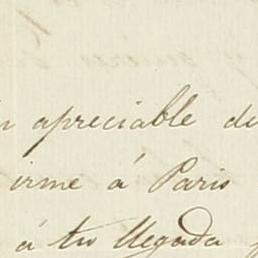 apreciable de
irme á Paris
á tu llegada